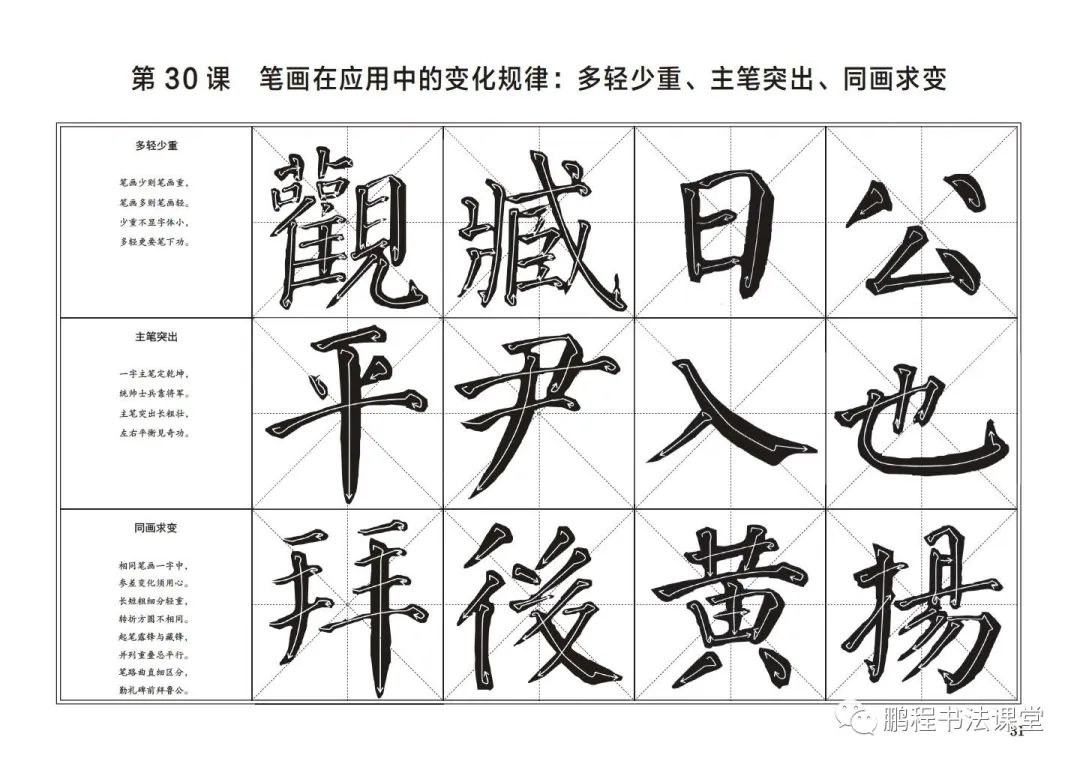 第 30 课 笔画在应用中的变化规律：多轻少重、主笔突出、同画求变
多轻少重
笔画少则笔画重，
笔画多则笔画轻。
少重不显字体小，
多轻更要笔下功。
觀 臧 日 公
主笔突出
一字主笔定乾坤，
统帅士兵靠将军。
主笔突出长粗壮，
左右平衡见奇功。
平 尹 入 也
同画求变
相同笔画一字中，
参差变化须用心。
长短粗细分轻重，
转折方圆不相同。
起笔露锋与藏锋，
并列重叠忌平行。
笔路曲直细区分，
勤礼碑前拜鲁公。
拜 後 黄 揚
鹏程书法课堂
31